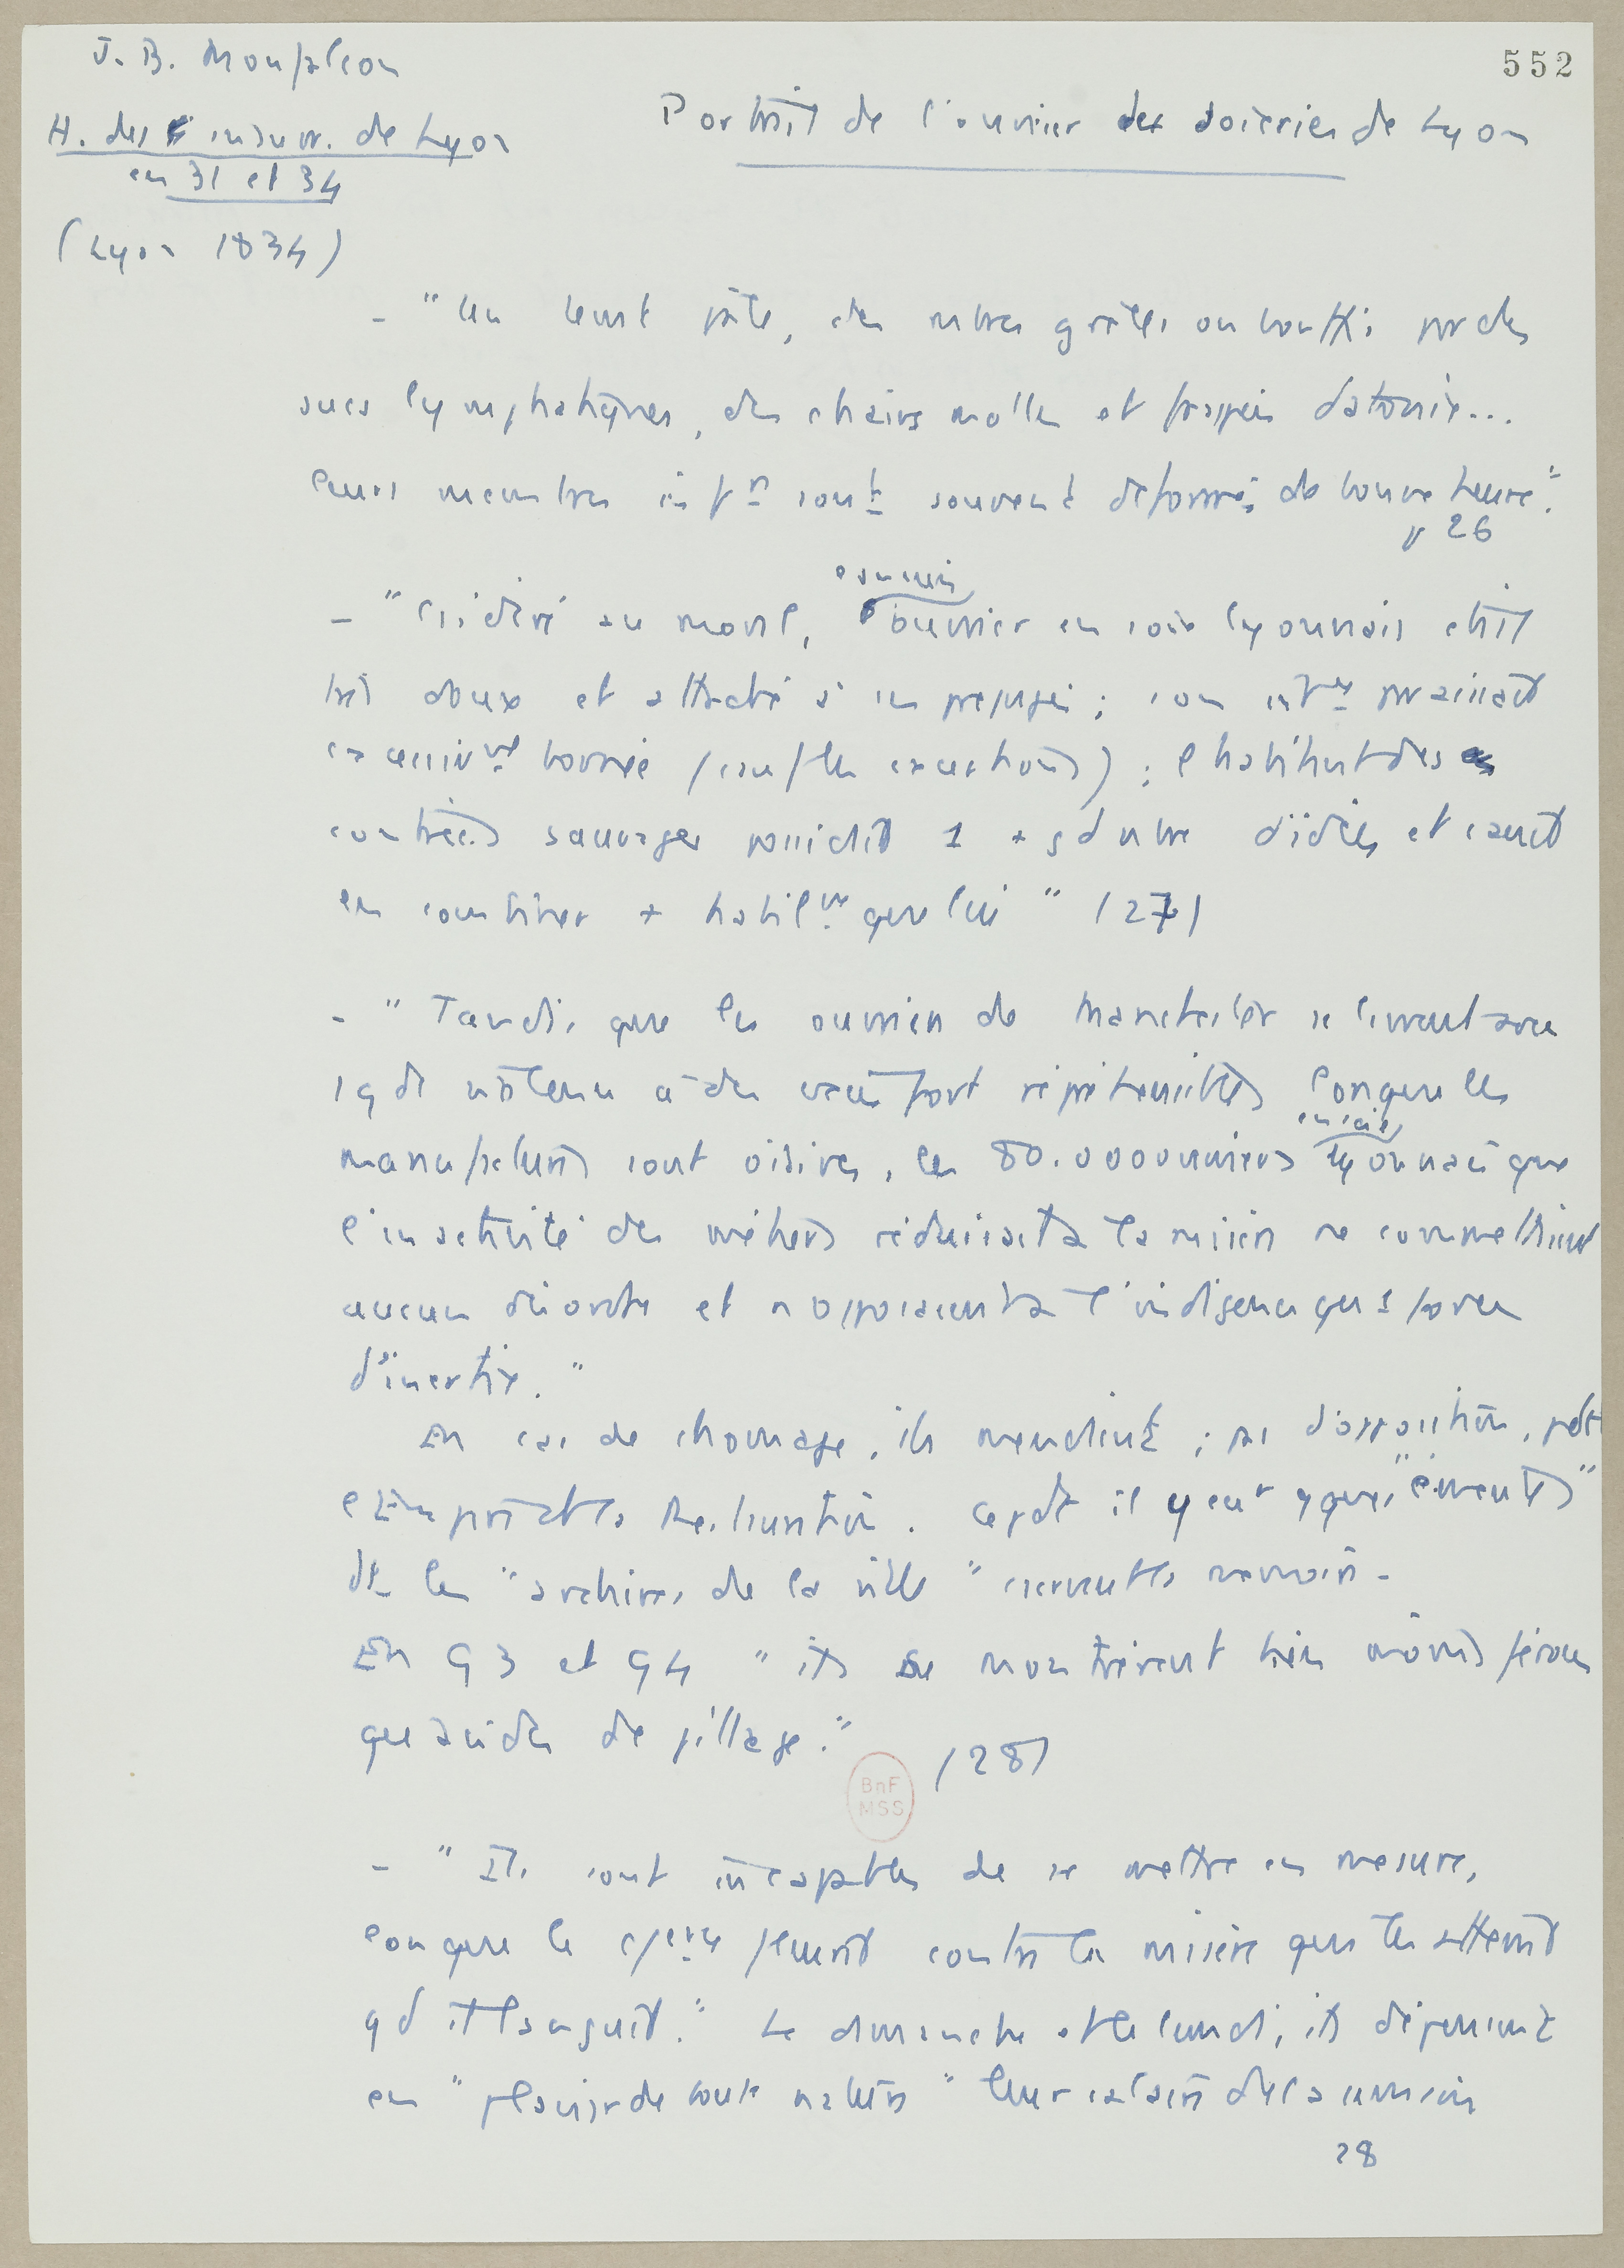 552
J. B. Monfalcon
H. des insurr. de Lyon
en 31 et 34
(Lyon 1834)
Portrait de l'ouvrier des soieries de Lyon
- "Un teint pâle, des membres grêles ou bouffis par des
sucs lymphatiques, des chairs molles et frappées d'atonie...
leurs membres infrs sont souvent déformés de bonne heure".
p 26
- "Considéré au moral, l'ouvrier en soie lyonnais était
autrefois
très doux et attaché à ses préjugés ; son intce paraissait
excessivt bornée (sauf les exceptions) ; l'habitant des
contrées sauvages possédait 1 + gd nbre d'idées et savait
en combiner + habilt que lui" (27)
- "Tandis que les ouvriers de Manchester se livrent avec
1 gde violence à des excès fort répréhensibles lorsque les
manufactures sont oisives, les 80.000 ouvriers lyonnais que
en soie
l'inactivité des métiers réduisait à la misère ne commettaient
aucun désordre et n'opposaient à l'indigence que 1 force
d'inertie."
En cas de chomage, ils mendient ; pas d'opposition, pdt
l'Empire et la Restauration. Cepdt il y eut qques "émeutes"
dt les "archives de la ville" conservent la mémoire.
En 93 et 94 "ils se montrèrent bien moins féroces
qu'avides de pillage."
(28)
BnF
MSS
- "Ils sont incapables de se mettre en mesure,
lorsque le cce fleurit contre la misère qui les atteint
qd il languit." Le dimanche et le lundi, ils dépensent
en "plaisirs de toute nature" leur salaire de la semaine
28